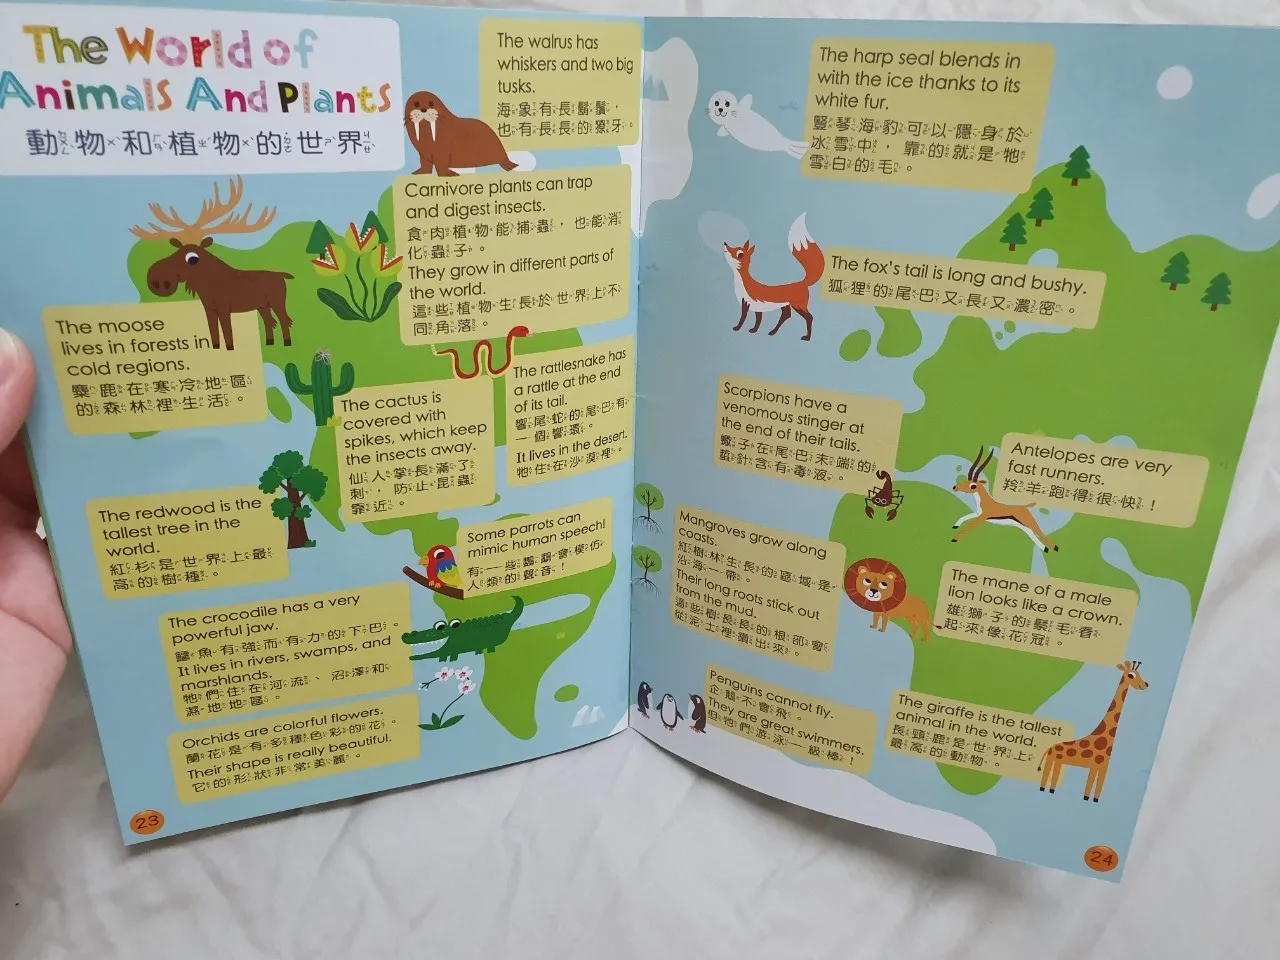 The World of
Animals And Plants
動物和植物的世界
The walrus has
whiskers and two big
tusks.
海象有長鬍鬚，
也有長長的獠牙。
Carnivore plants can trap
and digest insects.
食肉植物能捕蟲，也能消
化蟲子。
They grow in different parts of
the world.
這些植物生長於世界上不
同角落。
The moose
lives in forests in
cold regions.
麋鹿在寒冷地區
的森林裡生活。
The cactus is
covered with
spikes, which keep
the insects away.
仙人掌長滿了
刺，防止昆蟲
靠近。
The rattlesnake has
a rattle at the end
of its tail.
響尾蛇的尾巴有
一個響環。
It lives in the desert.
牠住在沙漠裡。
The redwood is the
tallest tree in the
world.
紅杉是世界上最
高的樹種。
Some parrots can
mimic human speech!
有一些鸚鵡會模仿
人類的聲音！
The crocodile has a very
powerful jaw.
鱷魚有強而有力的下巴。
It lives in rivers, swamps, and
marshlands.
牠們住在河流、沼澤和
濕地地區。
Orchids are colorful flowers.
蘭花是有多種色彩的花。
Their shape is really beautiful.
它的形狀非常美麗。
23
The harp seal blends in
with the ice thanks to its
white fur.
豎琴海豹可以隱身於
冰雪中，靠的就是牠
雪白的毛。
The fox's tail is long and bushy.
狐狸的尾巴又長又濃密。
Scorpions have a
venomous stinger at
the end of their tails.
蠍子在尾巴末端的
螫針含有毒液。
Antelopes are very
fast runners.
羚羊跑得很快！
Mangroves grow along
coasts.
紅樹林生長的區域是
沿海一帶。
Their long roots stick out
from the mud.
這些樹長長的根部會
從泥土裡露出來。
The mane of a male
lion looks like a crown.
雄獅子的鬃毛看
起來像花冠。
Penguins cannot fly.
企鵝不會飛。
They are great swimmers.
但牠們游泳一級棒！
The giraffe is the tallest
animal in the world.
長頸鹿是世界上
最高的動物。
24